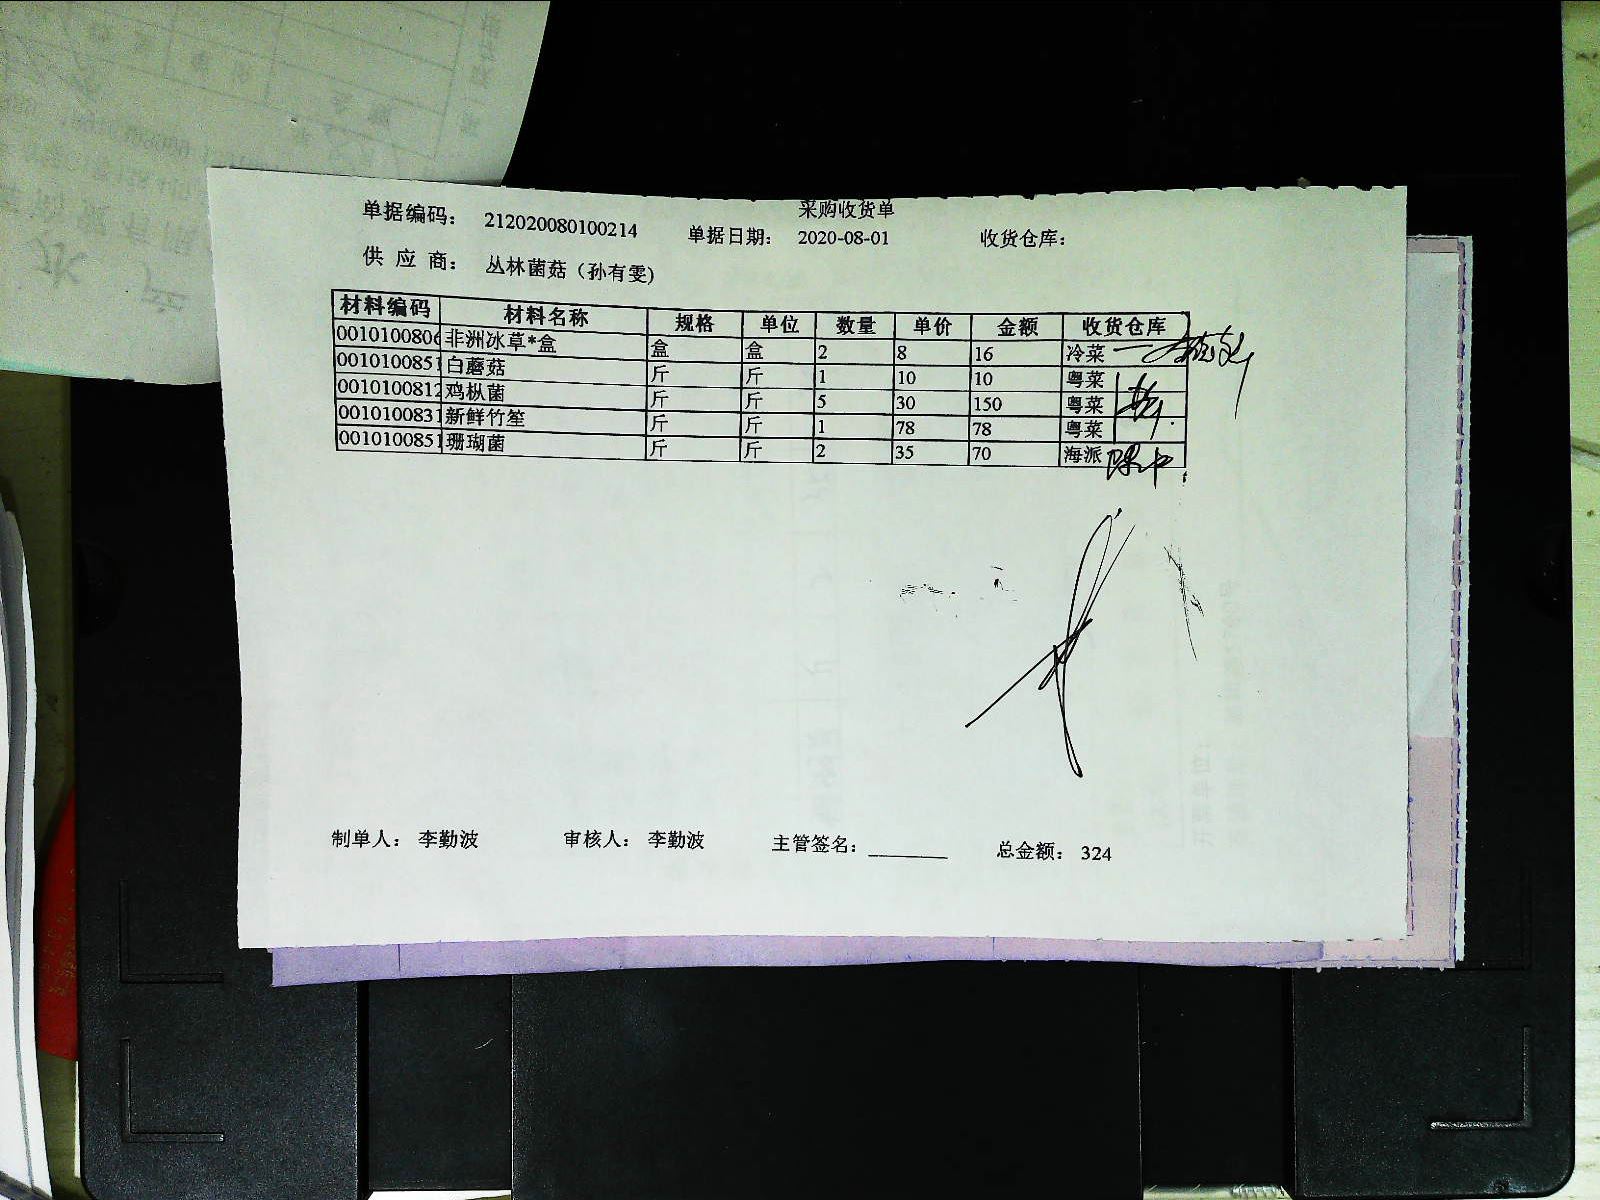 采购收货单
单据编码： 212020080100214 单据日期： 2020-08-01 收货仓库：
供 应 商： 丛林菌菇（孙有雯）
材料编码 材料名称 规格 单位 数量 单价 金额 收货仓库
0010100806 非洲冰草*盒 盒 盒 2 8 16 冷菜
0010100851 白蘑菇 斤 斤 1 10 10 粤菜
0010100812 鸡枞菌 斤 斤 5 30 150 粤菜
0010100831 新鲜竹笙 斤 斤 1 78 78 粤菜
0010100851 珊瑚菌 斤 斤 2 35 70 海派
制单人： 李勤波 审核人： 李勤波 主管签名： 总金额： 324